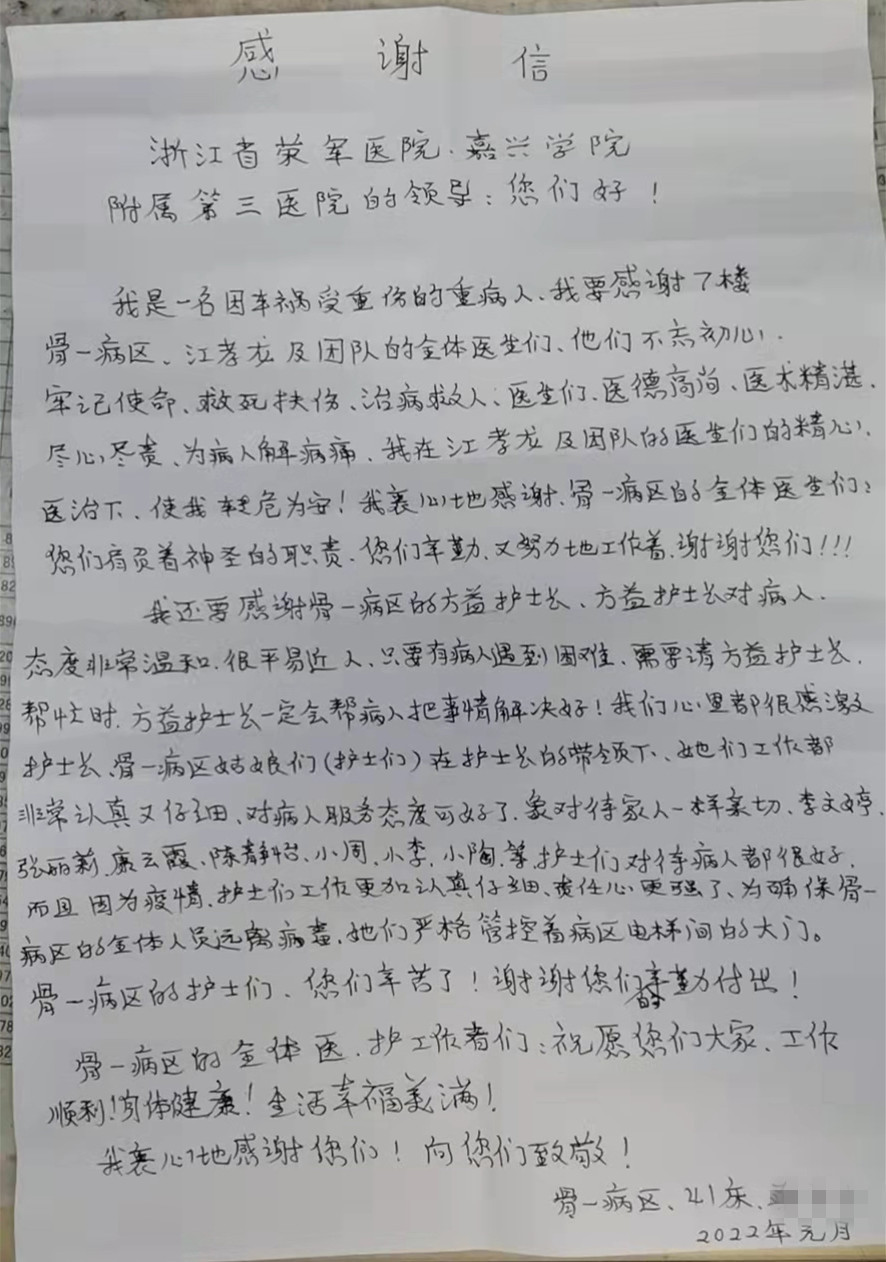 感谢信
浙江省荣军医院、嘉兴学院
附属第三医院的领导:您们好!
我是一名因车祸受重伤的重病人、我要感谢了楼
骨一病区、江孝龙及团队的全体医生们、他们不忘初心、
牢记使命、救死扶伤、治病救人、医生们、医德高尚、医术精湛、
尽心尽责、为病人解病痛、我在江孝龙及团队的医生们的精心、
医治下、使我转危为安!我衷心地感谢、骨一病区的全体医生们:
您们肩负着神圣的职责、您们辛勤、又努力地工作着、谢谢您们!!!
我还要感谢骨一病区的方益护士长、方益护士长对病人、
态度非常温和、很平易近人、只要有病人遇到困难、需要请方益护士长、
帮忙时、方益护士长一定会帮病人把事情解决好!我们心里都很感激
护士长、骨一病区姑娘们(护士们)在护士长的带领下、她们工作都
非常认真又仔细、对病人服务态度可好了、象对待家人一样亲切、李文婷、
张丽莉、康云霞、陈静怡、小周、小李、小陶、等、护士们对待病人都很好、
而且因为疫情、护士们工作更加认真仔细、责任心更强了、为确保骨一
病区的全体人员远离病毒、她们严格管控着病区电梯间的大门。
骨一病区的护士们、您们辛苦了!谢谢您们的辛勤付出!
骨一病区的全体医、护工作者们:祝愿您们大家、工作
顺利!身体健康!生活幸福美满!
我衷心地感谢您们!向您们致敬!
骨一病区、41床、
2022年元月